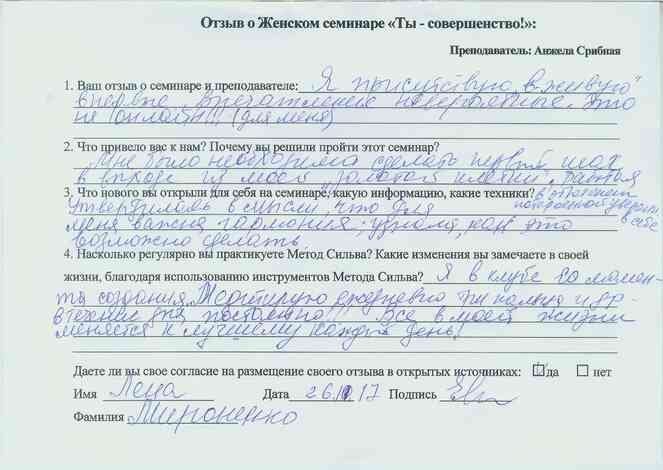 Отзыв о Женском семинаре «Ты - совершенство!»:
Преподаватель: Анжела Срибная
1. Ваш отзыв о семинаре и преподавателе: Я присутствую „в живую"
впервые. Впечатление невероятные. Это
не онлайн!!! (для меня)
2. Что привело вас к нам? Почему вы решили пройти этот семинар?
Мне было необходимо сделать первый шаг
в выходе из моей „золотой клетки",
3. Что нового вы открыли для себя на семинаре, какую информацию, какие техники?
Утвердилась в мысли, что для
меня важна гармония; узнала, как это
возможно сделать.
4. Насколько регулярно вы практикуете Метод Сильва? Какие изменения вы замечаете в своей
жизни, благодаря использованию инструментов Метода Сильва? Я в клубе со момен-
та создания. Медитирую ежедневно. Три пальца и др-
в течении дня постоянно!!! Все в моей жизни
меняется к лучшему каждый день!
Даете ли вы свое согласие на размещение своего отзыва в открытых источниках: да нет
Имя Лена Дата 26. 17 Подпись
Фамилия Мироненко